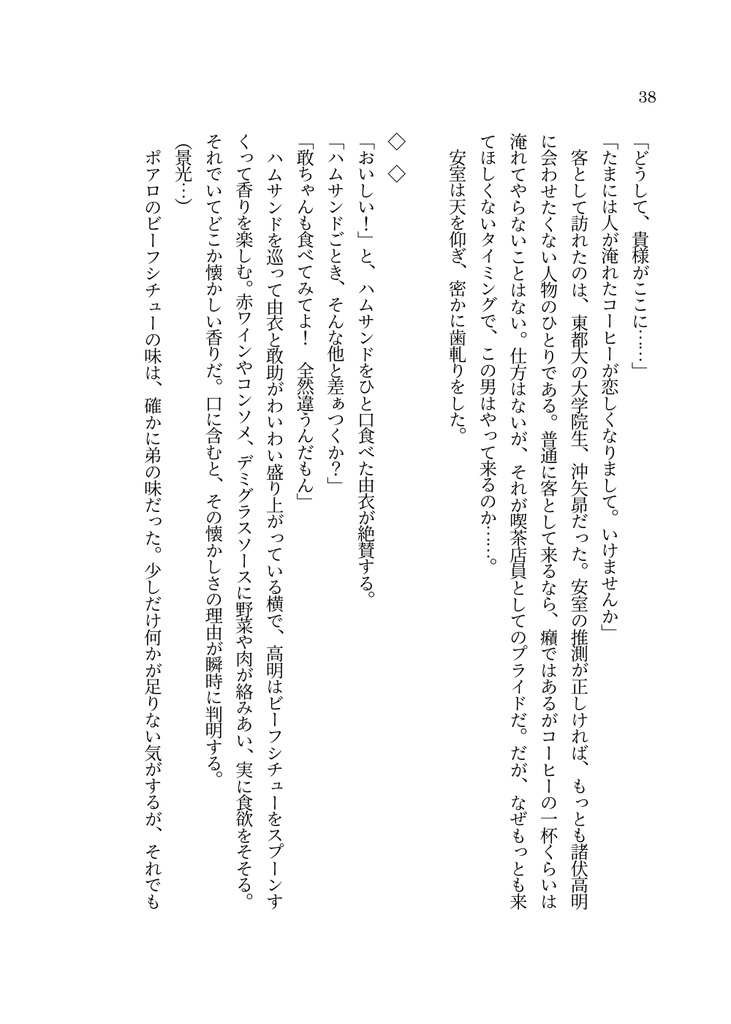 38
「どうして、貴様がここに……」
「たまには人が淹れたコーヒーが恋しくなりまして。いけませんか」
　客として訪れたのは、東都大の大学院生、沖矢昴だった。安室の推測が正しければ、もっとも諸伏高明
に会わせたくない人物のひとりである。普通に客として来るなら、癪ではあるがコーヒーの一杯くらいは
淹れてやらないことはない。仕方はないが、それが喫茶店員としてのプライドだ。だが、なぜもっとも来
てほしくないタイミングで、この男はやって来るのか……。
　安室は天を仰ぎ、密かに歯軋りをした。
◇　◇
「おいしい！」と、ハムサンドをひと口食べた由衣が絶賛する。
「ハムサンドごとき、そんな他と差ぁつくか？」
「敢ちゃんも食べてみてよ！　全然違うんだもん」
　ハムサンドを巡って由衣と敢助がわいわい盛り上がっている横で、高明はビーフシチューをスプーンす
くって香りを楽しむ。赤ワインやコンソメ、デミグラスソースに野菜や肉が絡みあい、実に食欲をそそる。
それでいてどこか懐かしい香りだ。口に含むと、その懐かしさの理由が瞬時に判明する。
（景光…）
　ポアロのビーフシチューの味は、確かに弟の味だった。少しだけ何かが足りない気がするが、それでも